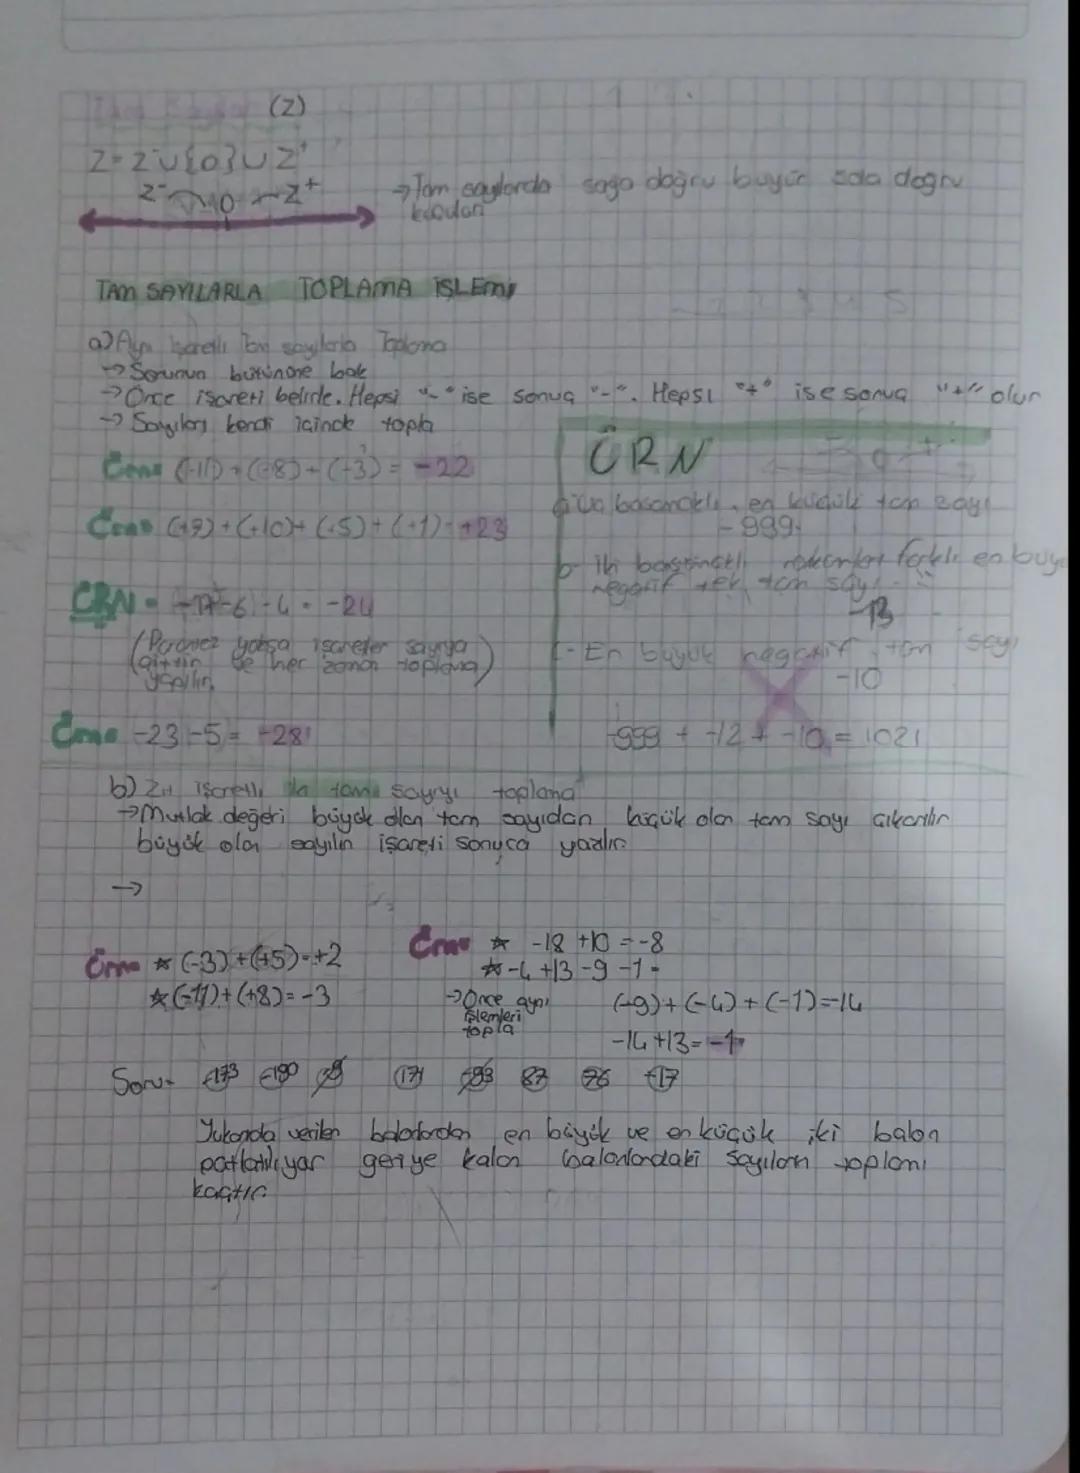 Tam Sayılar (Z)
Z = Z⁻∪{0}∪Z⁺
Z⁻ 0 Z⁺
→Tam sayılarda sağa doğru büyür sola doğru
TAM SAYILARLA TOPLAMA İŞLEMİ
a) Aynı İşaretli Tam sayılarla Toplama
→ Sorunun bütününe bak
→ Önce işareti belirle. Hepsi "-" ise sonuç "-". Hepsi "+" ise sonuç "+" olur
→ Sayıları kendi içinde topla
Örn= (-11) + (-8) + (-3) = -22
Örn= (+10) + (+5) + (+1) = +23
ÖRN= -6 -4 = -24
(Parantez yoksa işaretler sayıya
aittir ve her zaman toplama)
yapılır
Örn= -23 -5 = -28
ÖRN
- 0 +
a- Üç basamaklı en küçük tam sayı
-999
b- İki basamaklı rakamları farklı en büyü
negatif tek tam sayı
-13
- En büyük negatif tam sayı
-10
-999 + -12 + -10 = 1021
b) Zıt işaretli iki tam sayıyı toplama
→Mutlak değeri büyük olan tam sayıdan küçük olan tam sayı çıkarılır
büyük olan sayılın işareti sonuca yazılır
→
Örn= * (-3) + (+5) = +2
* (-11) + (+8) = -3
Örn= * -18 +10 = -8
* -4 +13 -9 -1 =
→Önce aynı
işlemleri
topla
(-9) + (-4) + (-1) = -14
-14 +13 = -1
Soru- -173 -190 171 87 76 +17
Yukarıda verilen balonlardan en büyük ve en küçük iki balon
patlatılıyor geriye kalan balonlardaki sayıların toplamı
kaçtır